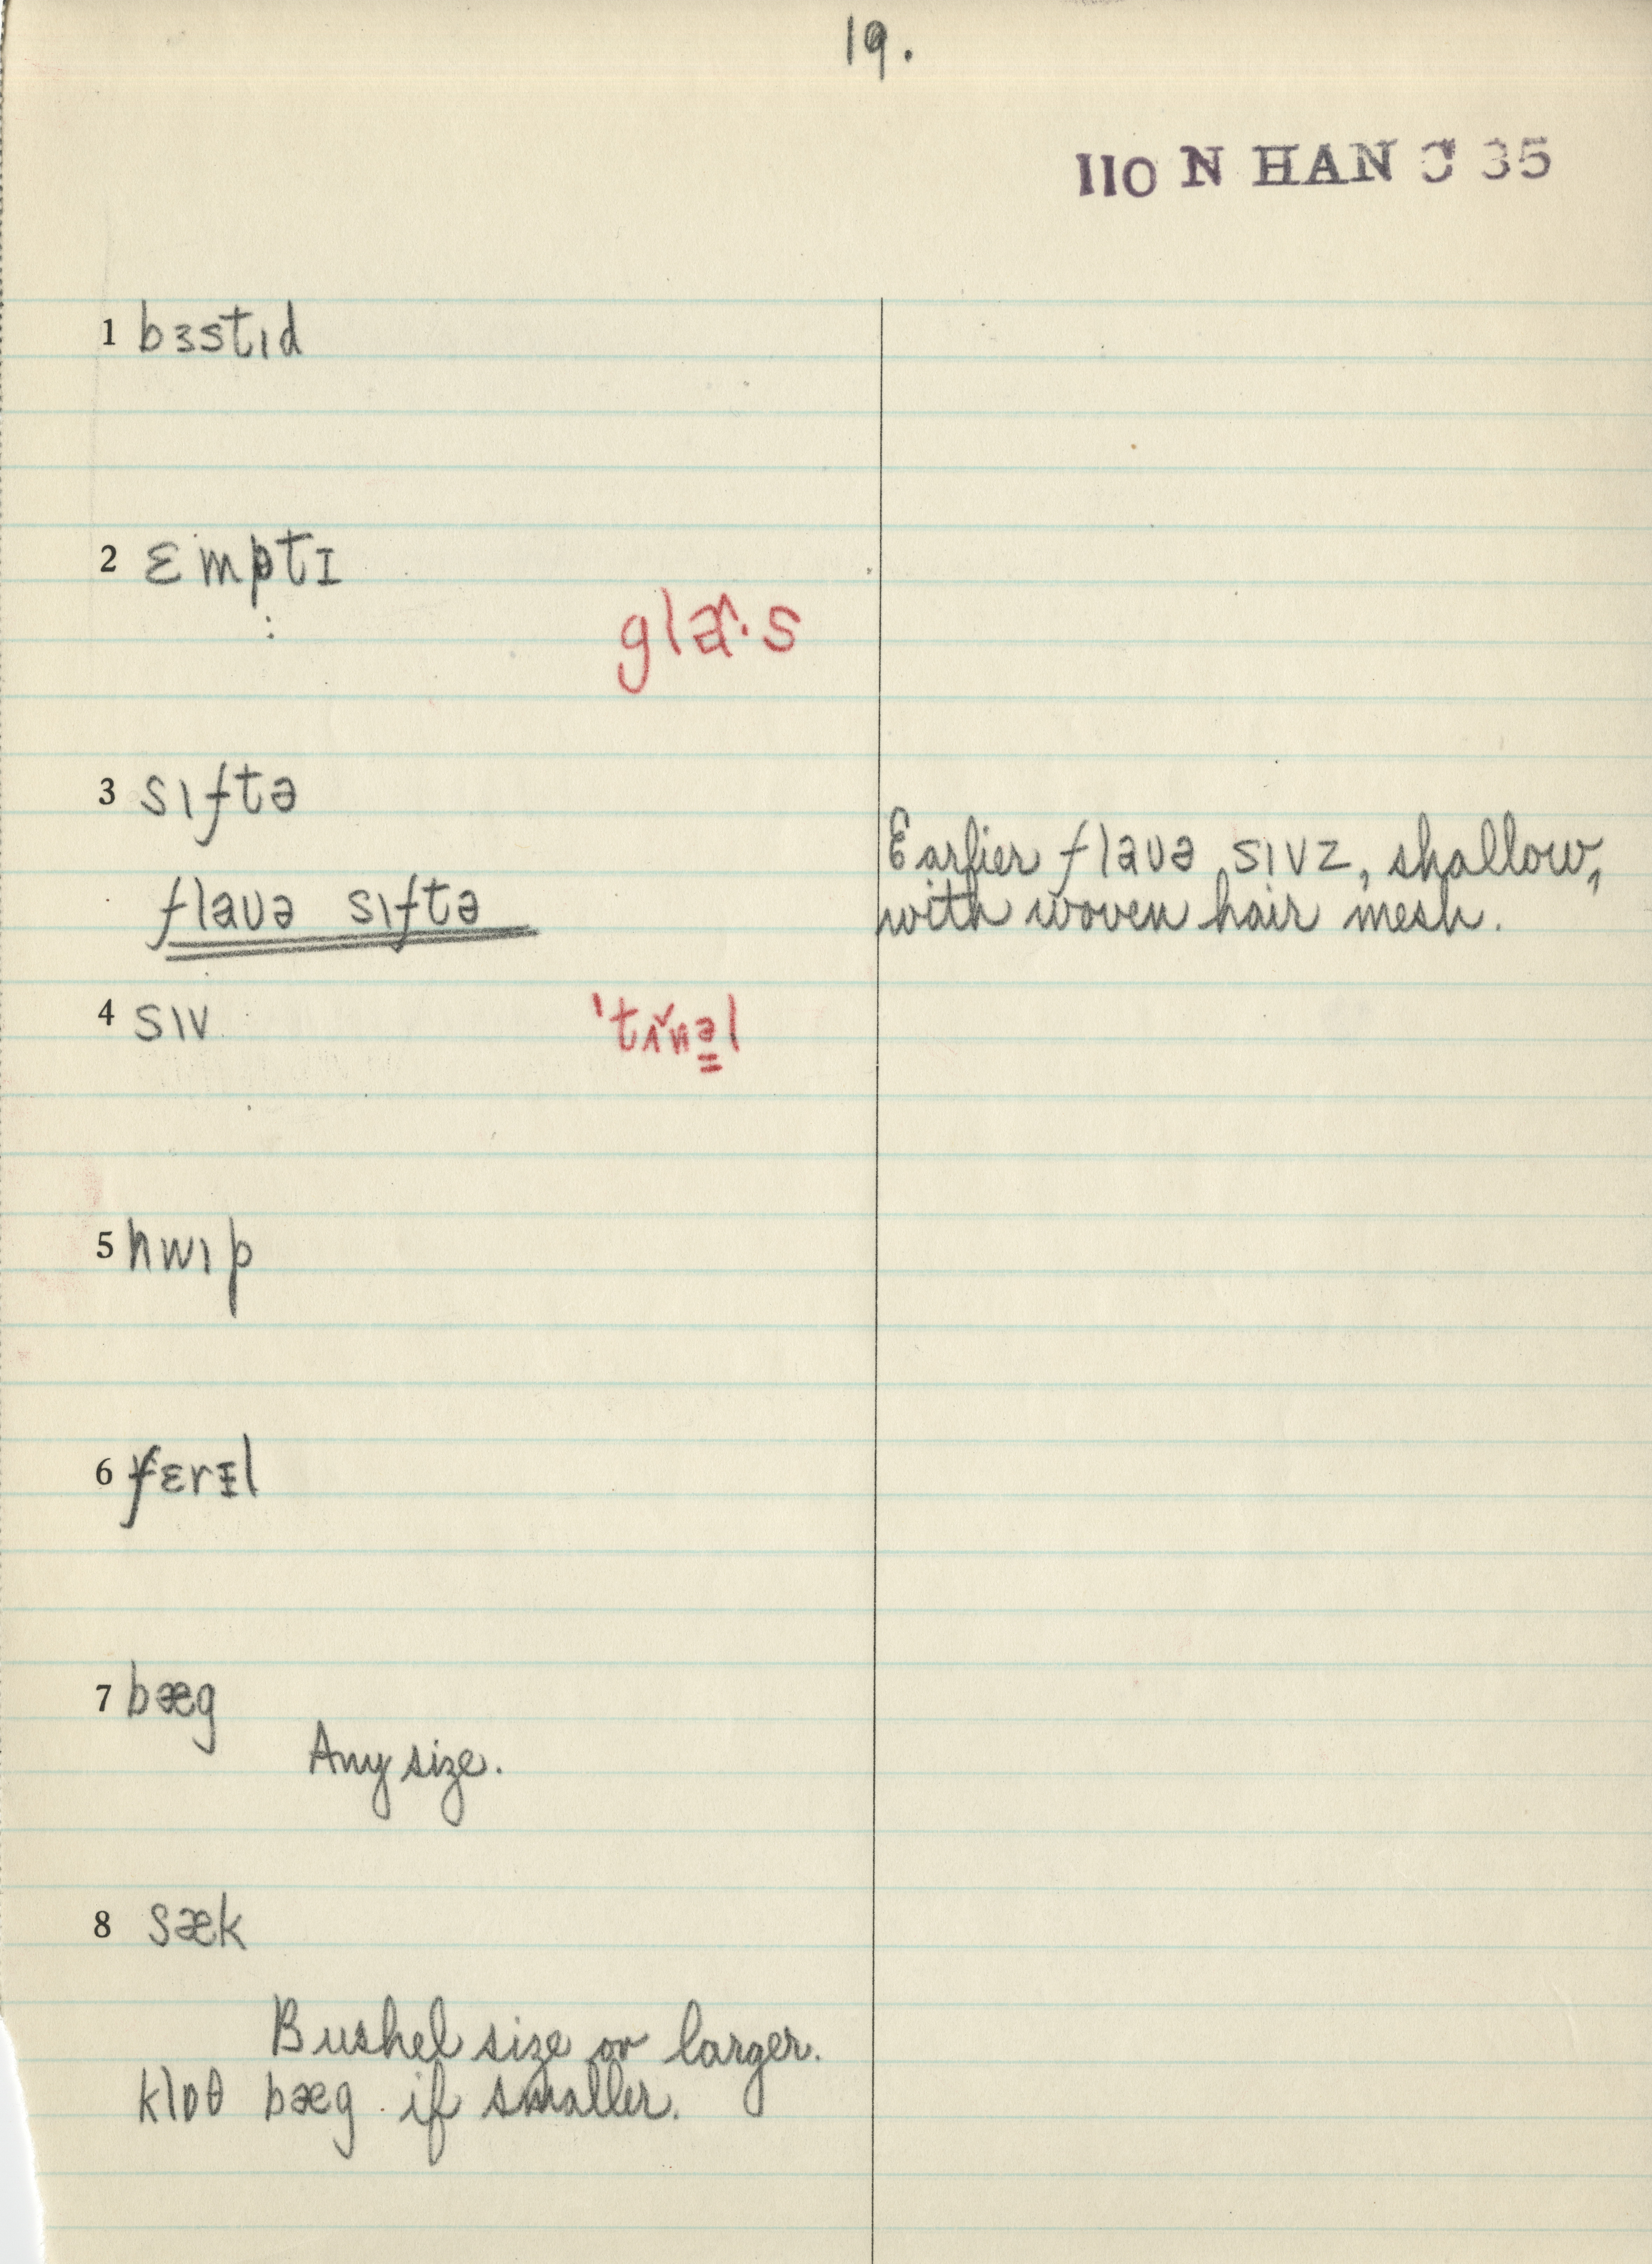 19.
110 N HAN C 35
1 bɜstɪd
2 ɛmptɪ
glæ˄·s
3 sɪftə
flaʊə sɪftə
Earlier flaʊə sɪvz, shallow,
with woven hair mesh.
4 sɪv
'tʌ˅nə̳l
5 hwɪp
6 fɛrᵻl
7 bæg
Any size.
8 sæk
Bushel size or larger.
klɒθ bæg if smaller.